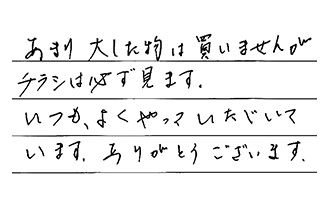 あまり大した物は買いませんが
チラシは必ず見ます.
いつも、よくやっていただいて
います. ありがとうございます.